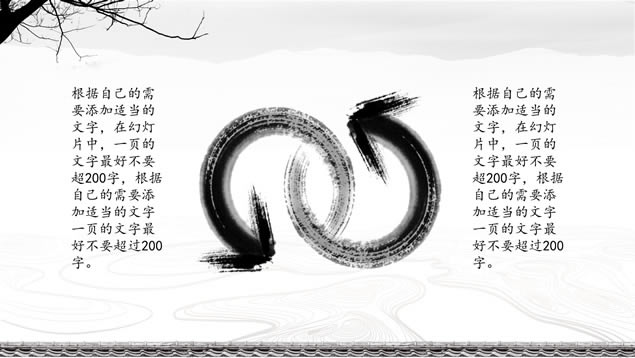 根据自己的需
要添加适当的
文字，在幻灯
片中，一页的
文字最好不要
超200字，根据
自己的需要添
加适当的文字
一页的文字最
好不要超过200
字。
根据自己的需
要添加适当的
文字，在幻灯
片中，一页的
文字最好不要
超200字，根据
自己的需要添
加适当的文字
一页的文字最
好不要超过200
字。